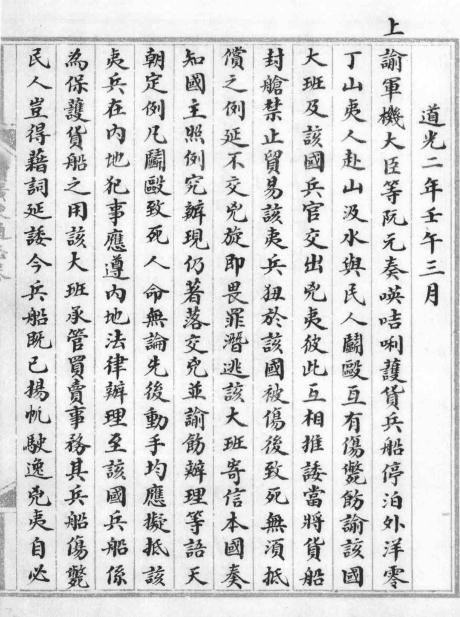 道光二年壬午三月
上
諭軍機大臣等阮元奏𠸄咭唎護貨兵船停泊外洋零
丁山夷人赴山汲水與民人鬭毆互有傷斃飭諭該國
大班及該國兵官交出兇夷彼此互相推諉當將貨船
封艙禁止貿易該夷兵狃於該國被傷後致死無須抵
償之例延不交兇旋即畏罪潛逃該大班寄信本國奏
知國主照例究辦現仍著落交兇並諭飭辦理等語天
朝定例凡鬭毆致死人命無論先後動手均應擬抵該
夷兵在內地犯事應遵內地法律辦理至該國兵船係
為保護貨船之用該大班承管買賣事務其兵船傷斃
民人豈得藉詞延諉今兵船既已揚帆駛逸兇夷自必